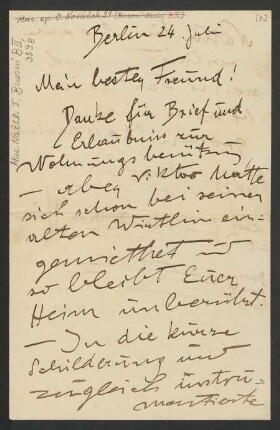 Mus. ep. O. Novácek 21 (Busoni-Nachl. B II)
Mus. Nachl. F. Busoni B II, 3399
Berlin 24. Juli
Mein bester Freund!
Danke für Brief und
Erlaubniss zur
Wohnungsbenützung
— aber Viktor hatte
sich schon bei seiner
alten Wirthin ein-
gemiethet und
so bleibt Euer
Heim unberührt.
— In die kurze
Schilderung und
zugleich instru=
mentierte